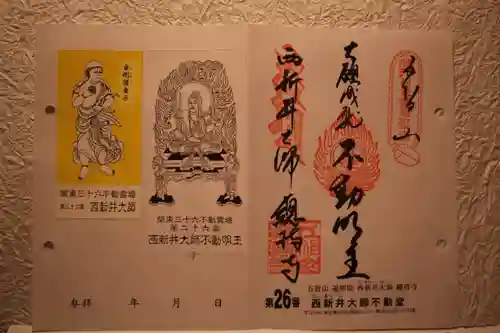 関東三十六不動霊場
第二十六番 西新井大師
関東三十六不動霊場
第二十六番
西新井大師不動明王
参拝 年 月 日
五智山
大願成就 不動明王
西新井大師 總持寺
五智山 遍照院 西新井大師 總持寺
第26番 西新井大師不動堂